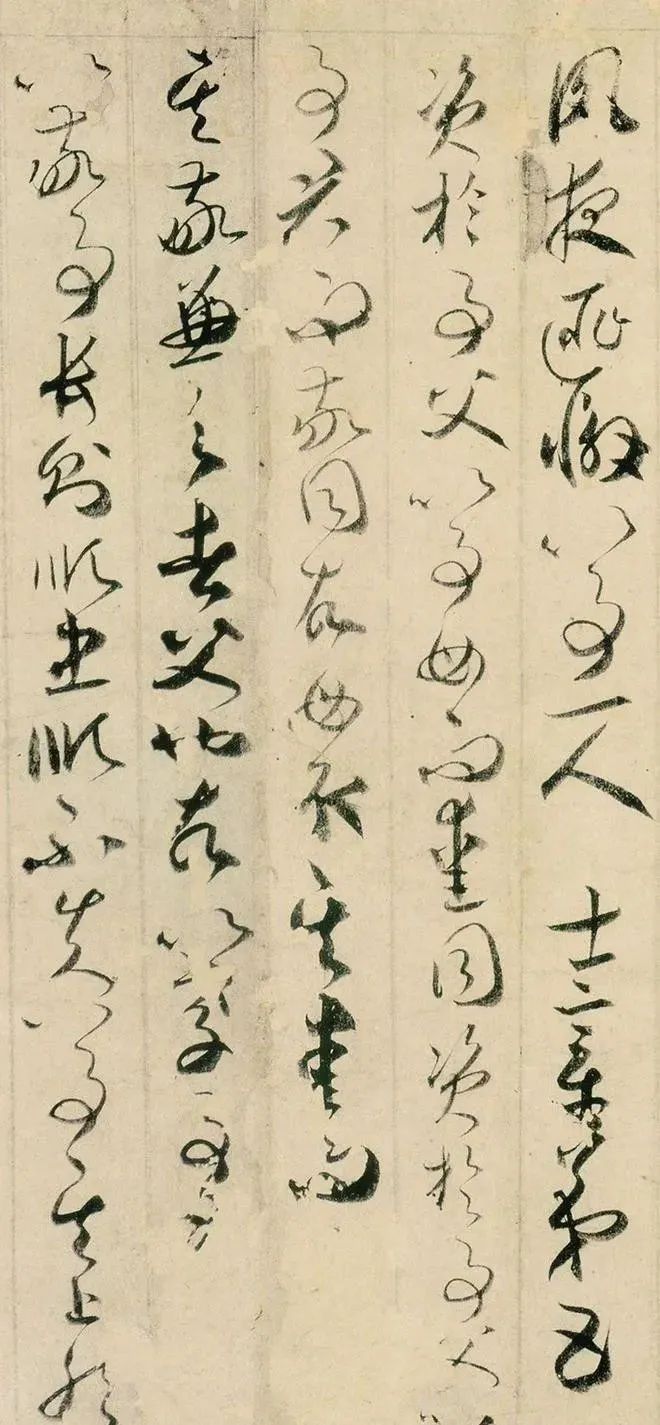 夙夜匪懈以事一人 士章第五
資於事父以事母而愛同資於事父以
事君而敬同故母取其愛而
其敬兼之者父也故以孝事君
以敬事長則順忠順不失以事其上然